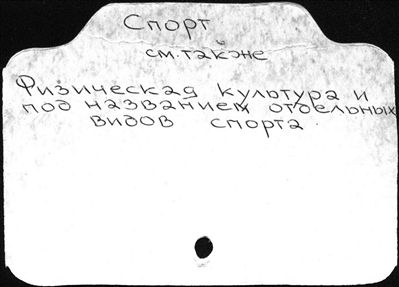 Спорт
см. также
Физическая культура и
под названием отдельных
видов спорта.